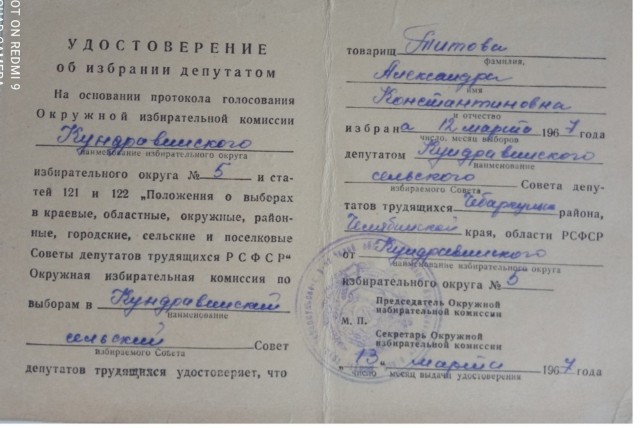 SHOT ON REDMI 9
УДОСТОВЕРЕНИЕ
об избрании депутатом
На основании протокола голосования
Окружной избирательной комиссии
Кундравинского
наименование избирательного округа
избирательного округа № 5 и ста-
тей 121 и 122 „Положения о выборах
в краевые, областные, окружные, район-
ные, городские, сельские и поселковые
Советы депутатов трудящихся РСФСР“
Окружная избирательная комиссия по
выборам в Кундравинский
наименование
сельский Совет
избираемого Совета
депутатов трудящихся удостоверяет, что
товарищ Титова
фамилия,
Александра
имя
Константиновна
и отчество
избрана 12 марта 1967 года
число, месяц выборов
депутатом Кундравинского
наименование
сельского Совета депу-
избираемого Совета
татов трудящихся района,
Челябинской края, области РСФСР
от Кундравинского
наименование избирательного округа
избирательного округа № 5
Председатель Окружной
избирательной комиссии
М. П.
Секретарь Окружной
избирательной комиссии
„13“ марта 1967 года
число месяц выдачи удостоверения